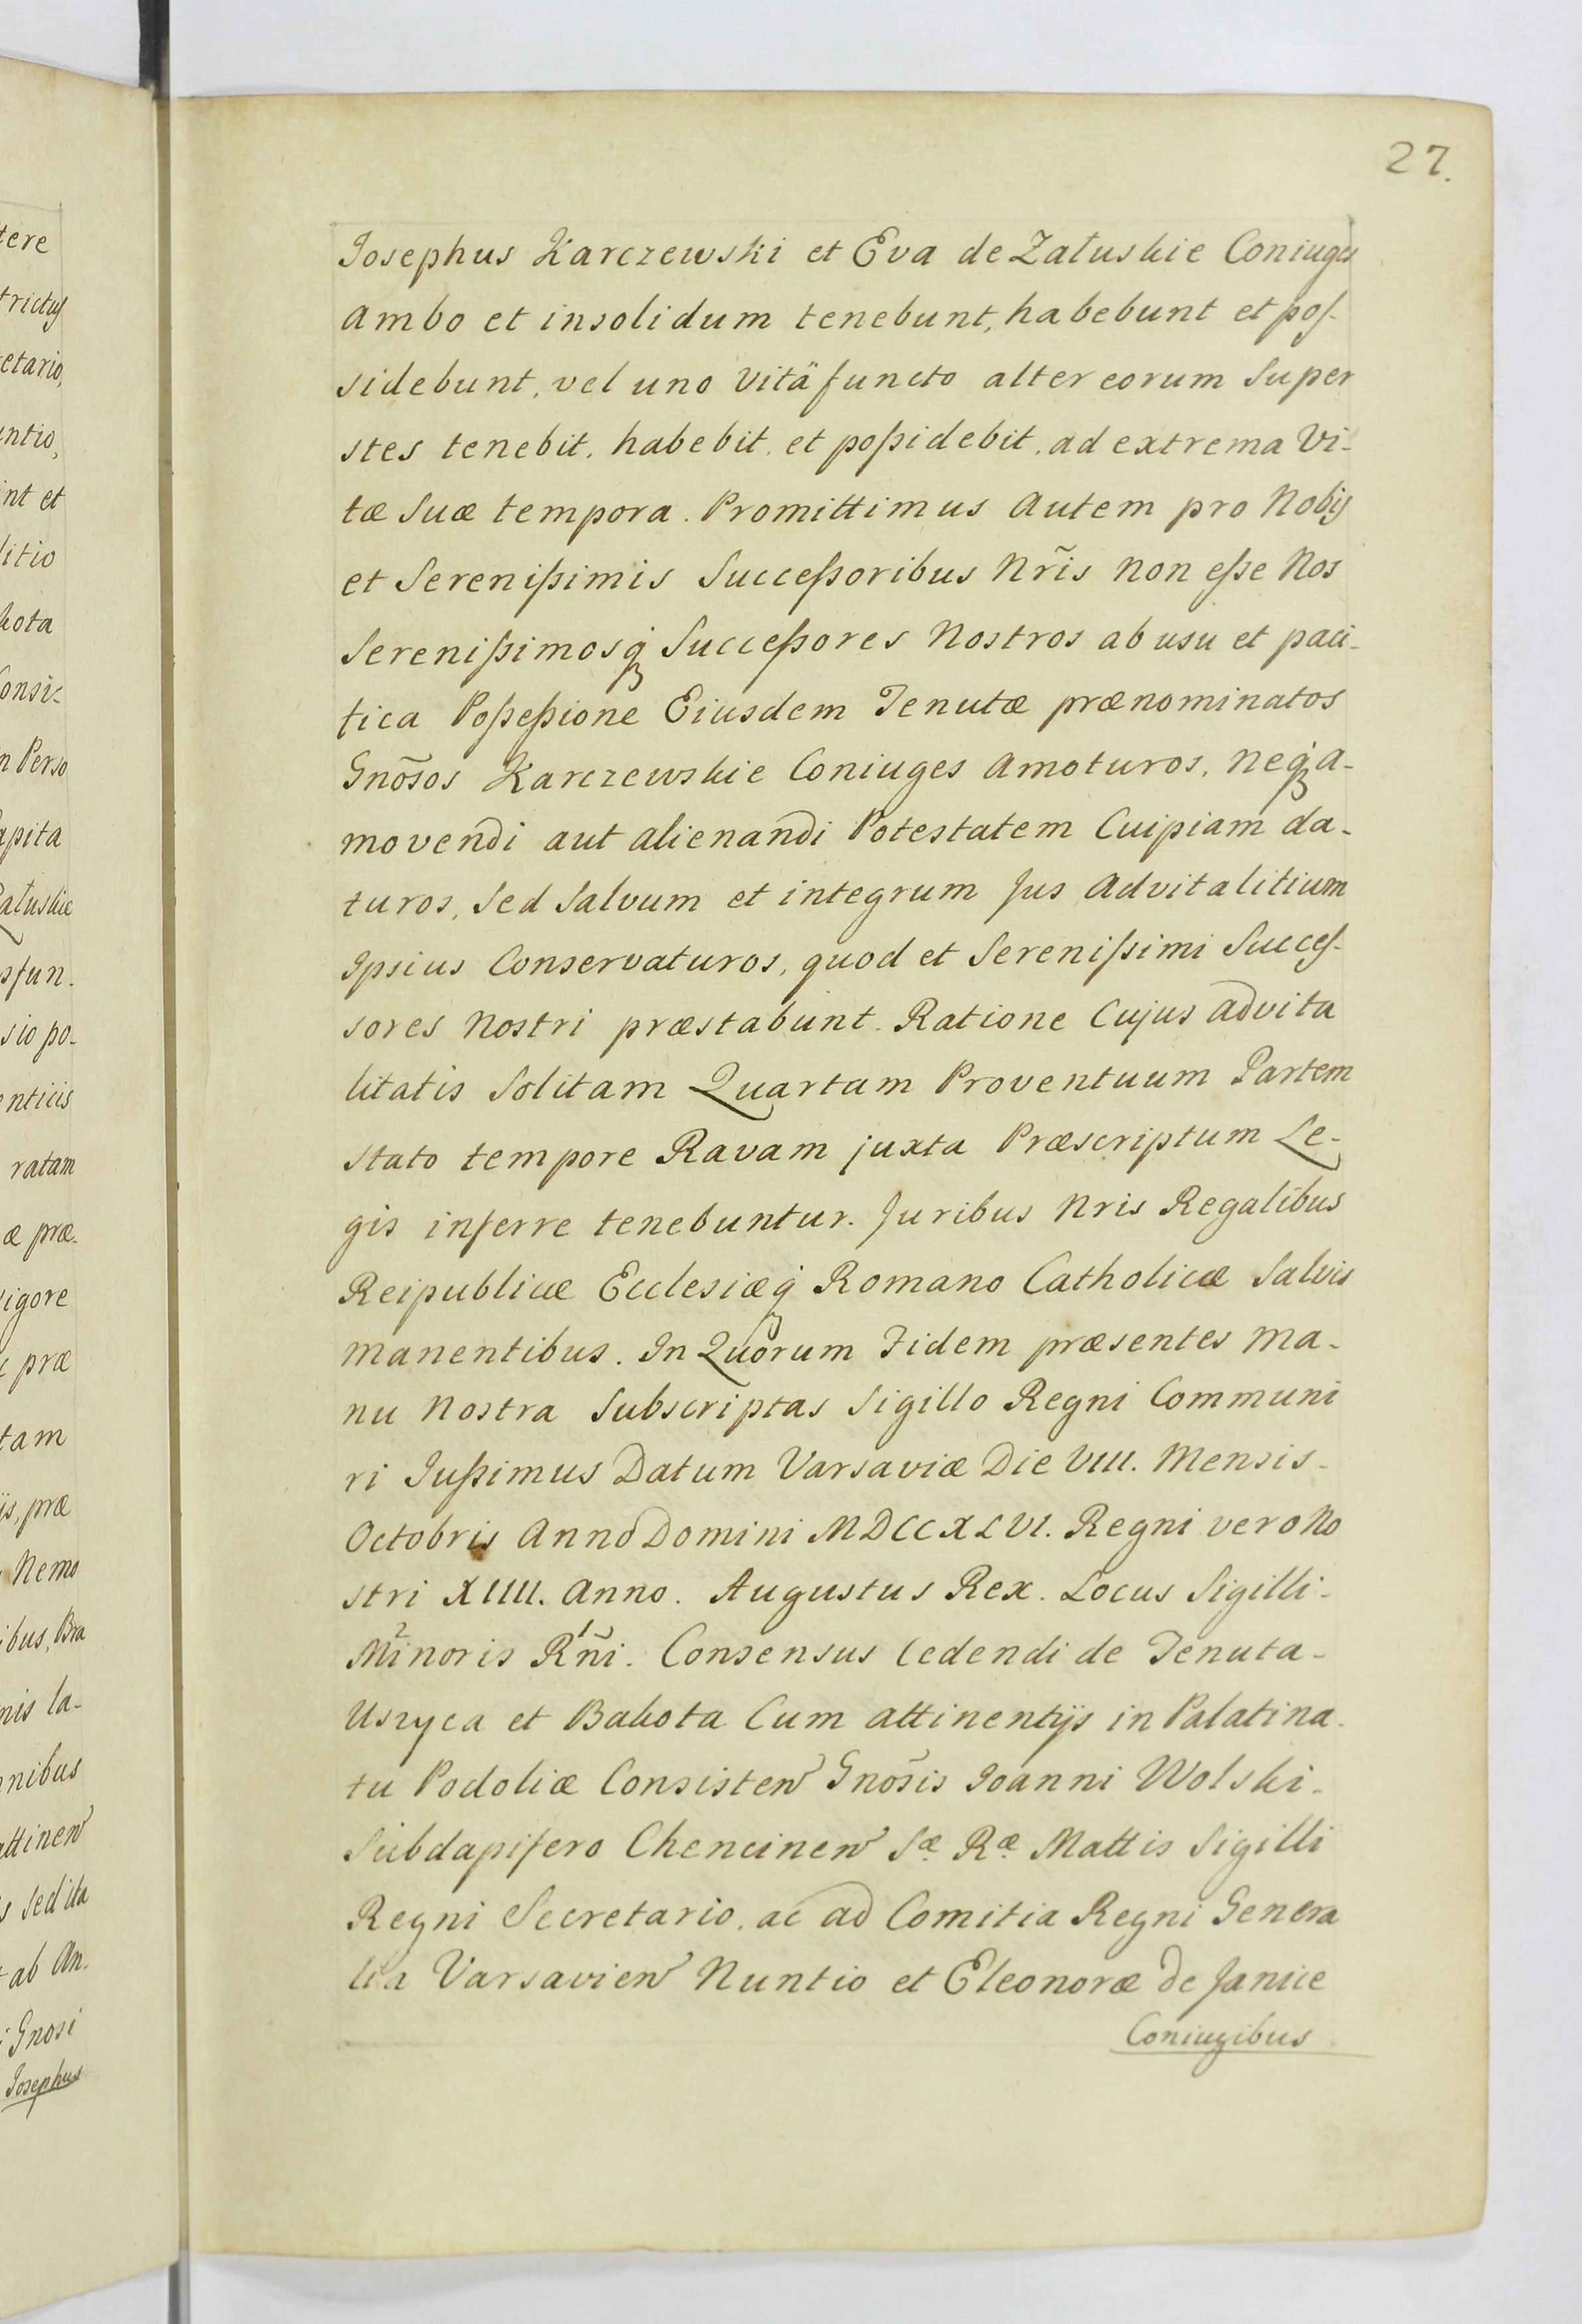 27.
Josephus Karczewski et Eva de Załuskie Coniuges
ambo et insolidum tenebunt, habebunt et pos-
sidebunt, vel uno vitä functo alter eorum Super
stes tenebit, habebit, et poßidebit, ad extrema Vi-
tæ Suæ tempora. Promittimus autem pro Nobis
et Serenißimis Succeßoribus Nr̃is non eße Nos
Serenißimosq; Succeßores Nostros ab usu et paci-
fica Poßeßione Eiusdem Tenutæ prænominatos
Gnõsos Karczewskie Coniuges amoturos, neq; a-
movendi aut alienandi Potestatem Cuipiam da-
turos, Sed Salvum et integrum Jus advitalitium
Ipsius Conservaturos, quod et Sereniſsimi Succeſ-
sores Nostri præstabunt. Ratione Cujus advita
litatis Solitam Quartam Proventuum Partem
stato tempore Ravam juxta Præscriptum Le-
gis inferre tenebuntur. Juribus Nris Regalibus
Reipublicæ Ecclesiæq; Romano Catholicæ Salvis
manentibus. In Quorum Fidem præsentes Ma-
nu Nostra Subscriptas Sigillo Regni Communi
ri Jußimus Datum Varsaviæ Die VIII. Mensis-
Octobris Anno Domini MDCCXLVI. Regni vero No
stri XIIII. Anno. Augustus Rex. Locus Sigilli-
Minoris Rñi. Consensus Cedendi de Tenuta-
Uszyca et Bakota Cum attinentijs in Palatina-
tu Podoliæ Consisten Gnõsis Joanni Wolski-
Subdapifero Chencinen Sæ Ræ Mattis Sigilli
Regni Secretario, ac ad Comitia Regni Genera
lia Varsavien Nuntio et Eleonoræ de Janice
Coniugibus
tere
trictus
etario,
untio,
int et
litio
kota
Consi-
n Perso
apita
Załuskie
sfun-
sio po-
enticis
ratam
æ præ-
vigore
præ
tam
ijs, præ
Nemo
ibus, Bra
nis la-
nibus
attinen
s sed ita
ab An-
Gnosi
Josephus